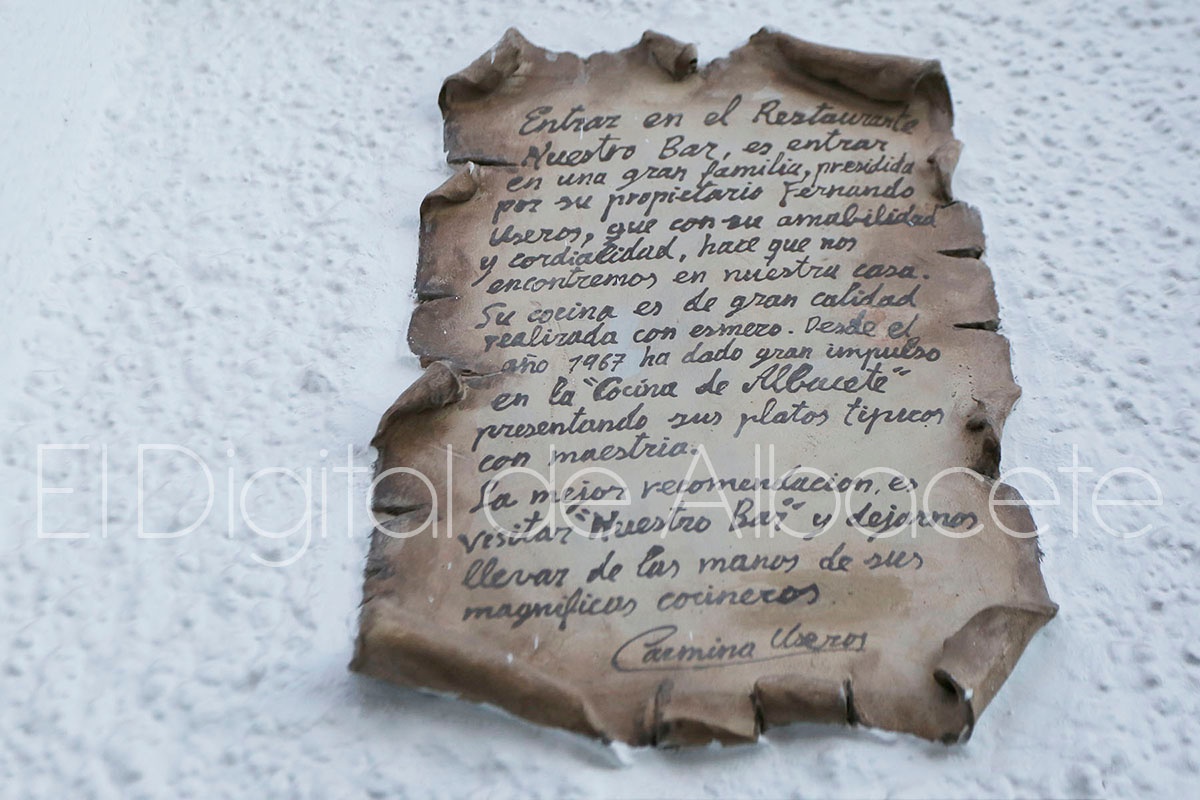 Entrar en el Restaurante
Nuestro Bar, es entrar
en una gran familia, presidida
por su propietario Fernando
Useros, que con su amabilidad
y cordialidad, hace que nos
encontremos en nuestra casa.
Su cocina es de gran calidad
realizada con esmero. Desde el
año 1967 ha dado gran impulso
en la "Cocina de Albacete"
presentando sus platos tipicos
con maestria.
La mejor recomendacion, es
visitar "Nuestro Bar" y dejarnos
llevar de las manos de sus
magnificos cocineros
Carmina Useros
El Digital de Albacete